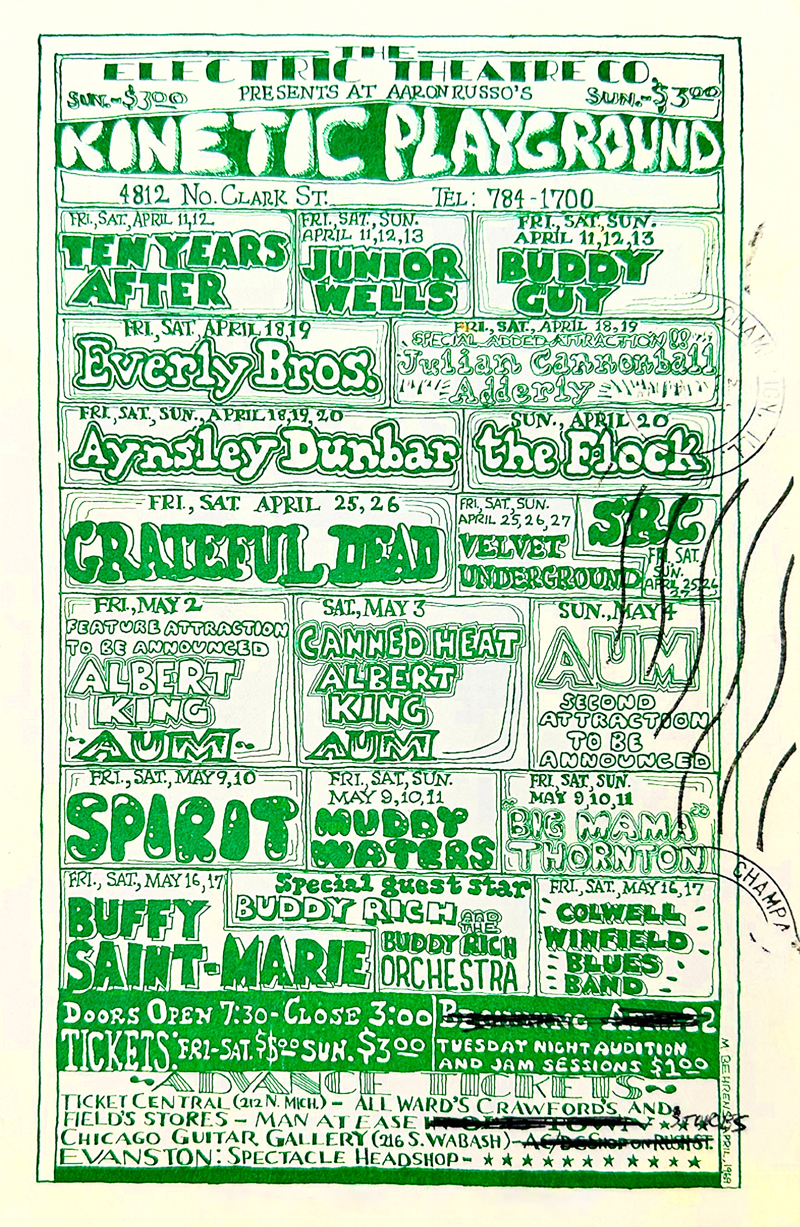 THE
ELECTRIC THEATRE CO.
SUN.-$3.00 PRESENTS AT AARON RUSSO'S SUN.-$3.00
KINETIC PLAYGROUND
4812 NO. CLARK ST. TEL: 784-1700
FRI., SAT., APRIL 11,12
TEN YEARS
AFTER
FRI., SAT., SUN.
APRIL 11,12,13
JUNIOR
WELLS
FRI., SAT., SUN.
APRIL 11,12,13
BUDDY
GUY
FRI., SAT. APRIL 18,19
Everly Bros.
FRI., SAT., APRIL 18,19
SPECIAL ADDED ATTRACTION!!
Julian Cannonball
Adderly
FRI., SAT., SUN., APRIL 18,19,20
Aynsley Dunbar
SUN., APRIL 20
the Flock
FRI., SAT APRIL 25,26
GRATEFUL DEAD
FRI., SAT., SUN.
APRIL 25,26,27
VELVET
UNDERGROUND
SRC
FRI., SAT.
SUN.
APRIL 25,26
27
FRI., MAY 2
FEATURE ATTRACTION
TO BE ANNOUNCED
ALBERT
KING
AUM
SAT., MAY 3
CANNED HEAT
ALBERT
KING
AUM
SUN., MAY 4
AUM
SECOND
ATTRACTION
TO BE
ANNOUNCED
FRI., SAT., MAY 9,10
SPIRIT
FRI., SAT., SUN.
MAY 9,10,11
MUDDY
WATERS
FRI., SAT., SUN.
MAY 9,10,11
"BIG MAMA"
THORNTON
FRI., SAT., MAY 16,17
BUFFY
SAINT-MARIE
Special guest star
BUDDY RICH AND
THE
BUDDY RICH
ORCHESTRA
FRI., SAT., MAY 16,17
COLWELL
WINFIELD
BLUES
BAND
DOORS OPEN 7:30-CLOSE 3:00
TICKETS: FRI-SAT. $5.00 SUN. $3.00
TUESDAY NIGHT AUDITION
AND JAM SESSIONS $1.00
ADVANCE TICKETS
TICKET CENTRAL (212 N. MICH.) – ALL WARD'S CRAWFORD'S AND
FIELD'S STORES – MAN AT EASE STORES
CHICAGO GUITAR GALLERY (216 S. WABASH) – AC/DC SHOP ON RUSH ST.
EVANSTON: SPECTACLE HEADSHOP –
M. BEHRENS APRIL, 1969
CHAMPA
ILL.